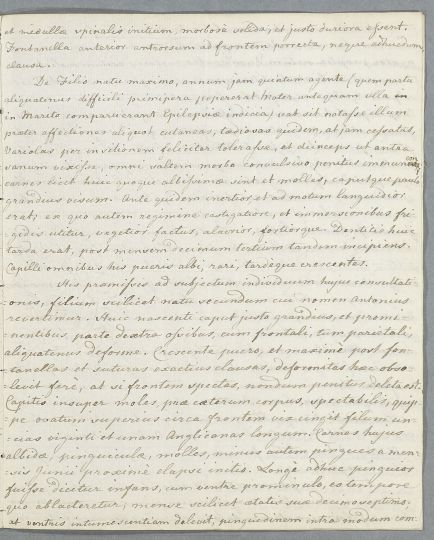 et medullæ spinalis initium morbosè solida, et justo duriora essent.
Fontanella anterior antrorsum ad frontem porrecta, neque adhucdum
clausa.
De Filio natu maximo, annum jam quintum agente (quem partu
aliquatenus difficili primipera pepererat Mater antequam ulla in
in Marito comparuerant Epilepsiæ indicia) sat sit notasse illum
præter affectiones aliquot cutaneas, tædiosas quidem, at jam cessatas,
Variolas per insitionem feliciter tolerasse, et deinceps ut antea
sanum vixisse, omni saltem morbo convulsivo penitus immunem
carnes licet huic quoque albissimæ sint et molles, caputque paulo
grandius visum. Ante quidem inertior et ad motum languidior
erat; ex quo autem regimine castigatiore, et immersionibus fri-
gidis utitur, vegetior factus, alacrior, fortiorque. Dentitio huic
tarda erat, post mensem decimum tertium tandem incipiens.
Capilli omnibus his pueris albi, rari, tardeque crescentes.
His præmissis ad subjectum individuum hujus consultati-
onis, filium scilicet natu secundum cui nomen Antonius
revertimur. Huic nascenti caput justo grandius, et promi-
nentibus, parte dextra ossibus, cum frontali, tum parietali,
aliquatenus deforme. Crescente puero, et maxime post fon-
tanellas et suturas exactius clausas, deformitas hæc obso-
levit fere, at si frontem spectes, nondum penitus deleta est.
Capitis insuper moles præ cæterum corpus, spectabilis, quip-
pe ovatum superius circa frontem vix cingit filum un-
cias viginti et unam Anglicanas longum. Carnes hujus
albidæ, pinguiculæ, molles, minus autem pingues a men-
sis Junii proxime elapsi initio. Longe adhuc pinguior
fuisse dicitur infans, cum ventre prominulo, eo tempore
quo ablacteretur, mense scilicet ætatis suæ decimoseptimo;
at ventris intumescentiam delevit, pinguedinem intra modum com-